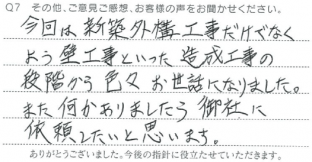 Q7 その他、ご意見ご感想、お客様の声をお聞かせください。
今回は新築外構工事だけでなく
よう壁工事といった造成工事の
段階から色々お世話になりました。
また何かありましたら御社に
依頼したいと思います。
ありがとうございました。今後の指針に役立たせていただきます。